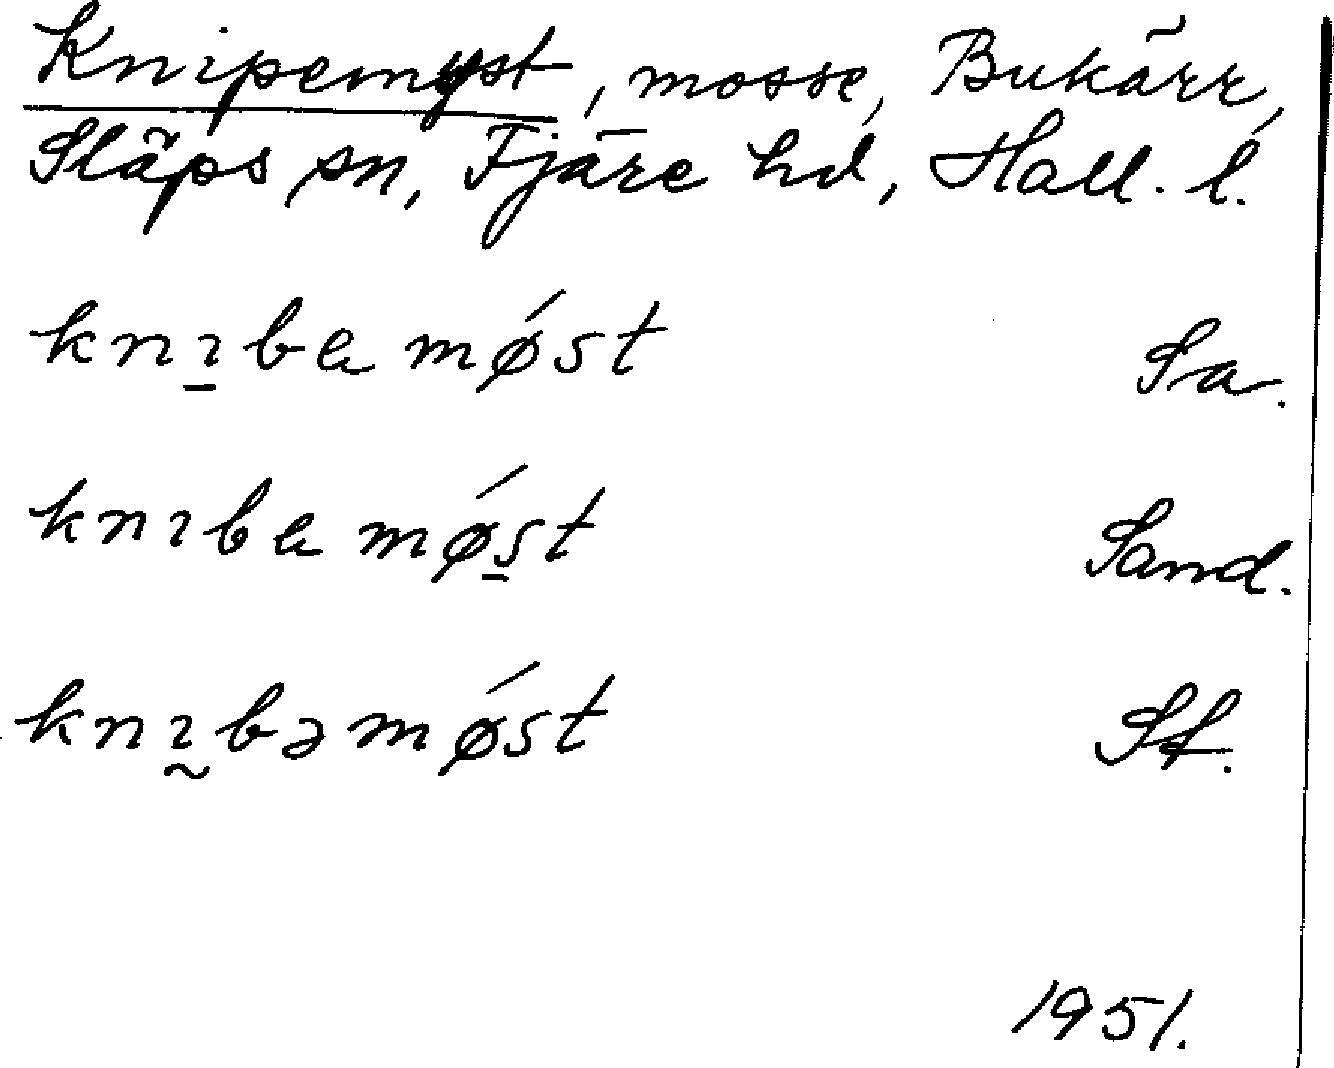 Knipemyst, mosse, Bukärr,
Släps sn, Fjäre hd, Hall. l.
knɪ̱bemǿst Sa.
knɪbemǿs̱t Sand.
knɪ̰bəmǿst St.
1951.